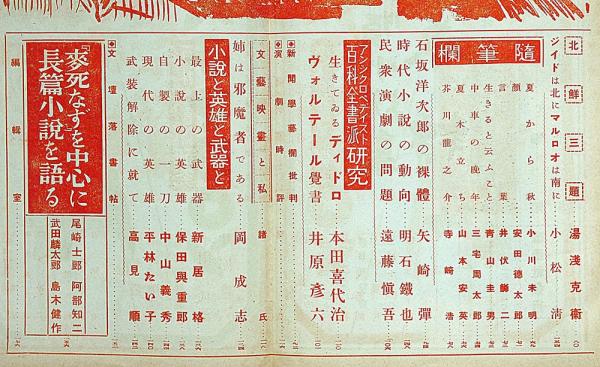 北鮮三題……湯淺克衞
ジイドは北にマルロオは南に……小松清
隨筆欄
夏から秋……小川未明
顏……安田德太郎
言葉……井伏鱒二
生きると云ふこと……靑山圭男
中車の晚年……三宅周太郎
夏木立ち……山本安英
芥川龍之介……寺崎浩
石坂洋次郎の裸體……矢崎彈
時代小說の動向……明石鐵也
民衆演劇の問題……遠藤愼吾
アンシクロペディスト
百科全書派研究
生きてゐるディドロ……本田喜代治
ヴォルテール覺書……井原彥六
◆新聞學藝欄批判
◆演劇時評
文藝映畫と私……諸氏
姉は邪魔者である……岡成志
小說と英雄と武器と
最上の武器……新居格
小說の英雄……保田與重郎
自製の一刀……中山義秀
現代の英雄……平林たい子
武裝解除に就て……高見順
◆文壇落書帖
『麥死なず』を中心に
長篇小說を語る
尾崎士郎 阿部知二
武田麟太郎 島木健作
編輯室